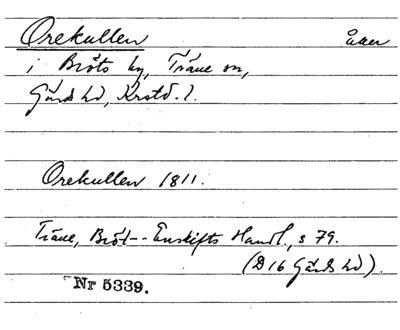 Orekullen åker
i Bröts by, Träne sn,
Gärds hd, Krstd. l.
Orekullen 1811.
Träne, Bröt-- Enskifts Handl., s 79.
(D 16 Gärds hd).
Nr 5339.